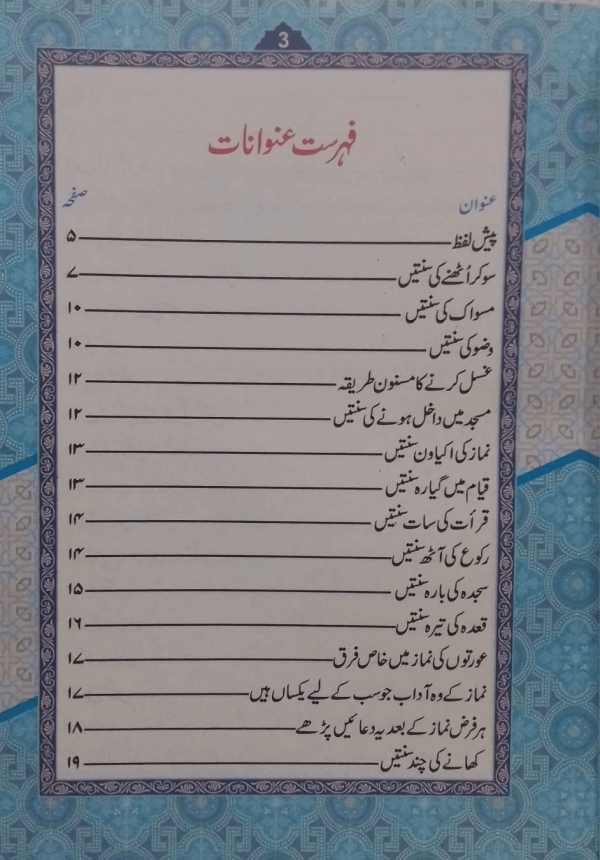 3
فہرست عنوانات
عنوان صفحہ
پیش لفظ ۵
سوکر اُٹھنے کی سنتیں ۷
مسواک کی سنتیں ۱۰
وضو کی سنتیں ۱۰
غسل کرنے کا مسنون طریقہ ۱۲
مسجد میں داخل ہونے کی سنتیں ۱۲
نماز کی اکیاون سنتیں ۱۳
قیام میں گیارہ سنتیں ۱۳
قرأت کی سات سنتیں ۱۴
رکوع کی آٹھ سنتیں ۱۴
سجدہ کی بارہ سنتیں ۱۵
قعدہ کی تیرہ سنتیں ۱۶
عورتوں کی نماز میں خاص فرق ۱۷
نماز کے وہ آداب جو سب کے لیے یکساں ہیں ۱۷
ہر فرض نماز کے بعد یہ دعائیں پڑھے ۱۸
کھانے کی چند سنتیں ۱۹